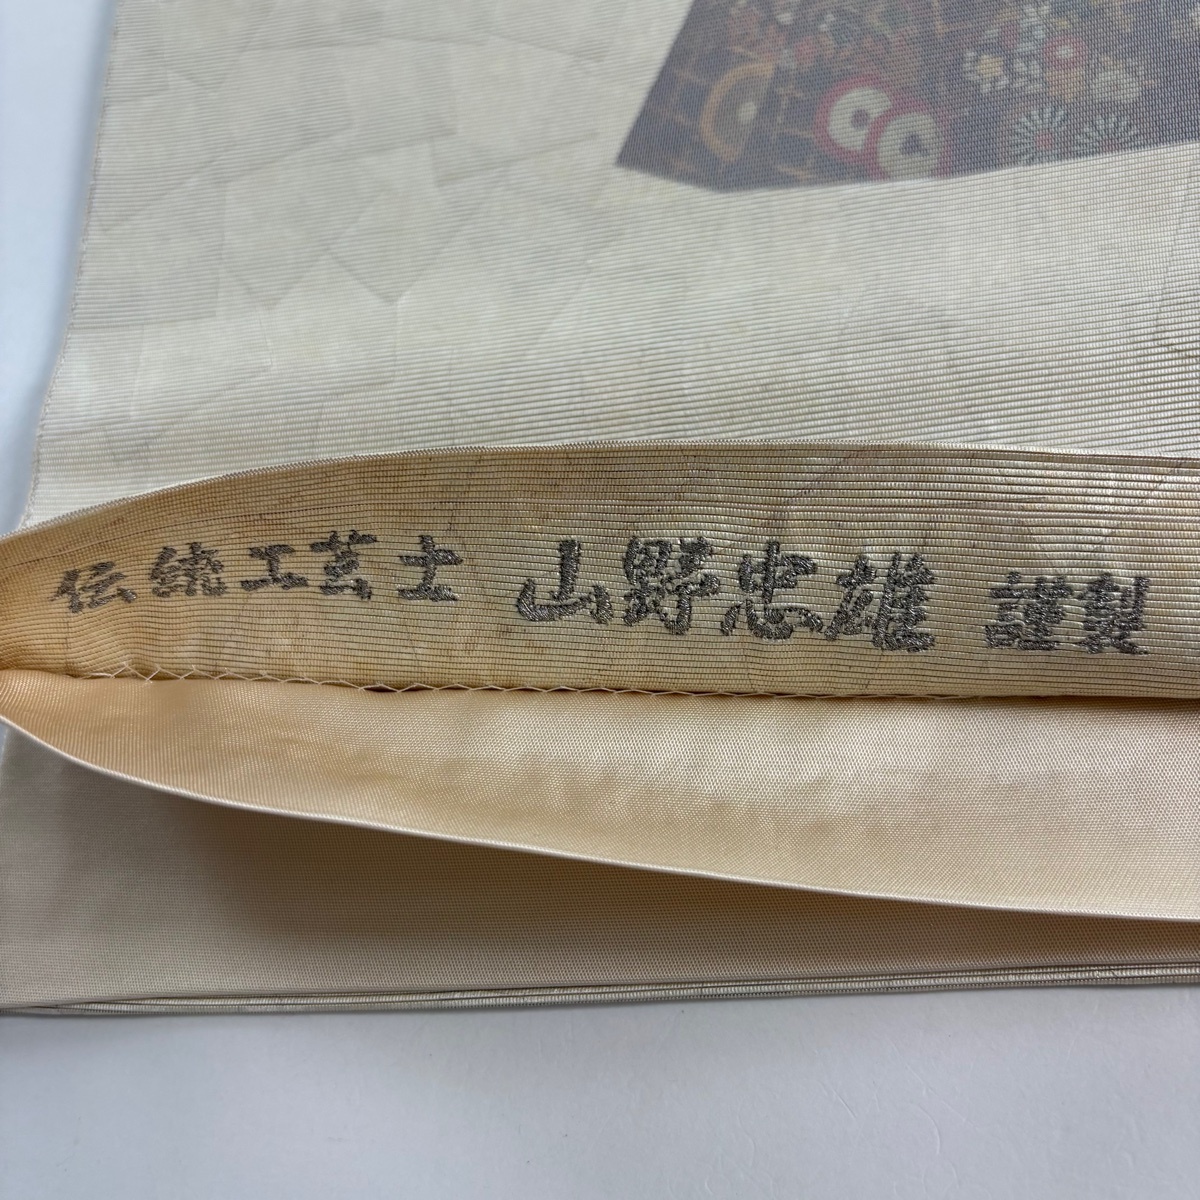 伝統工芸士 山野忠雄 謹製